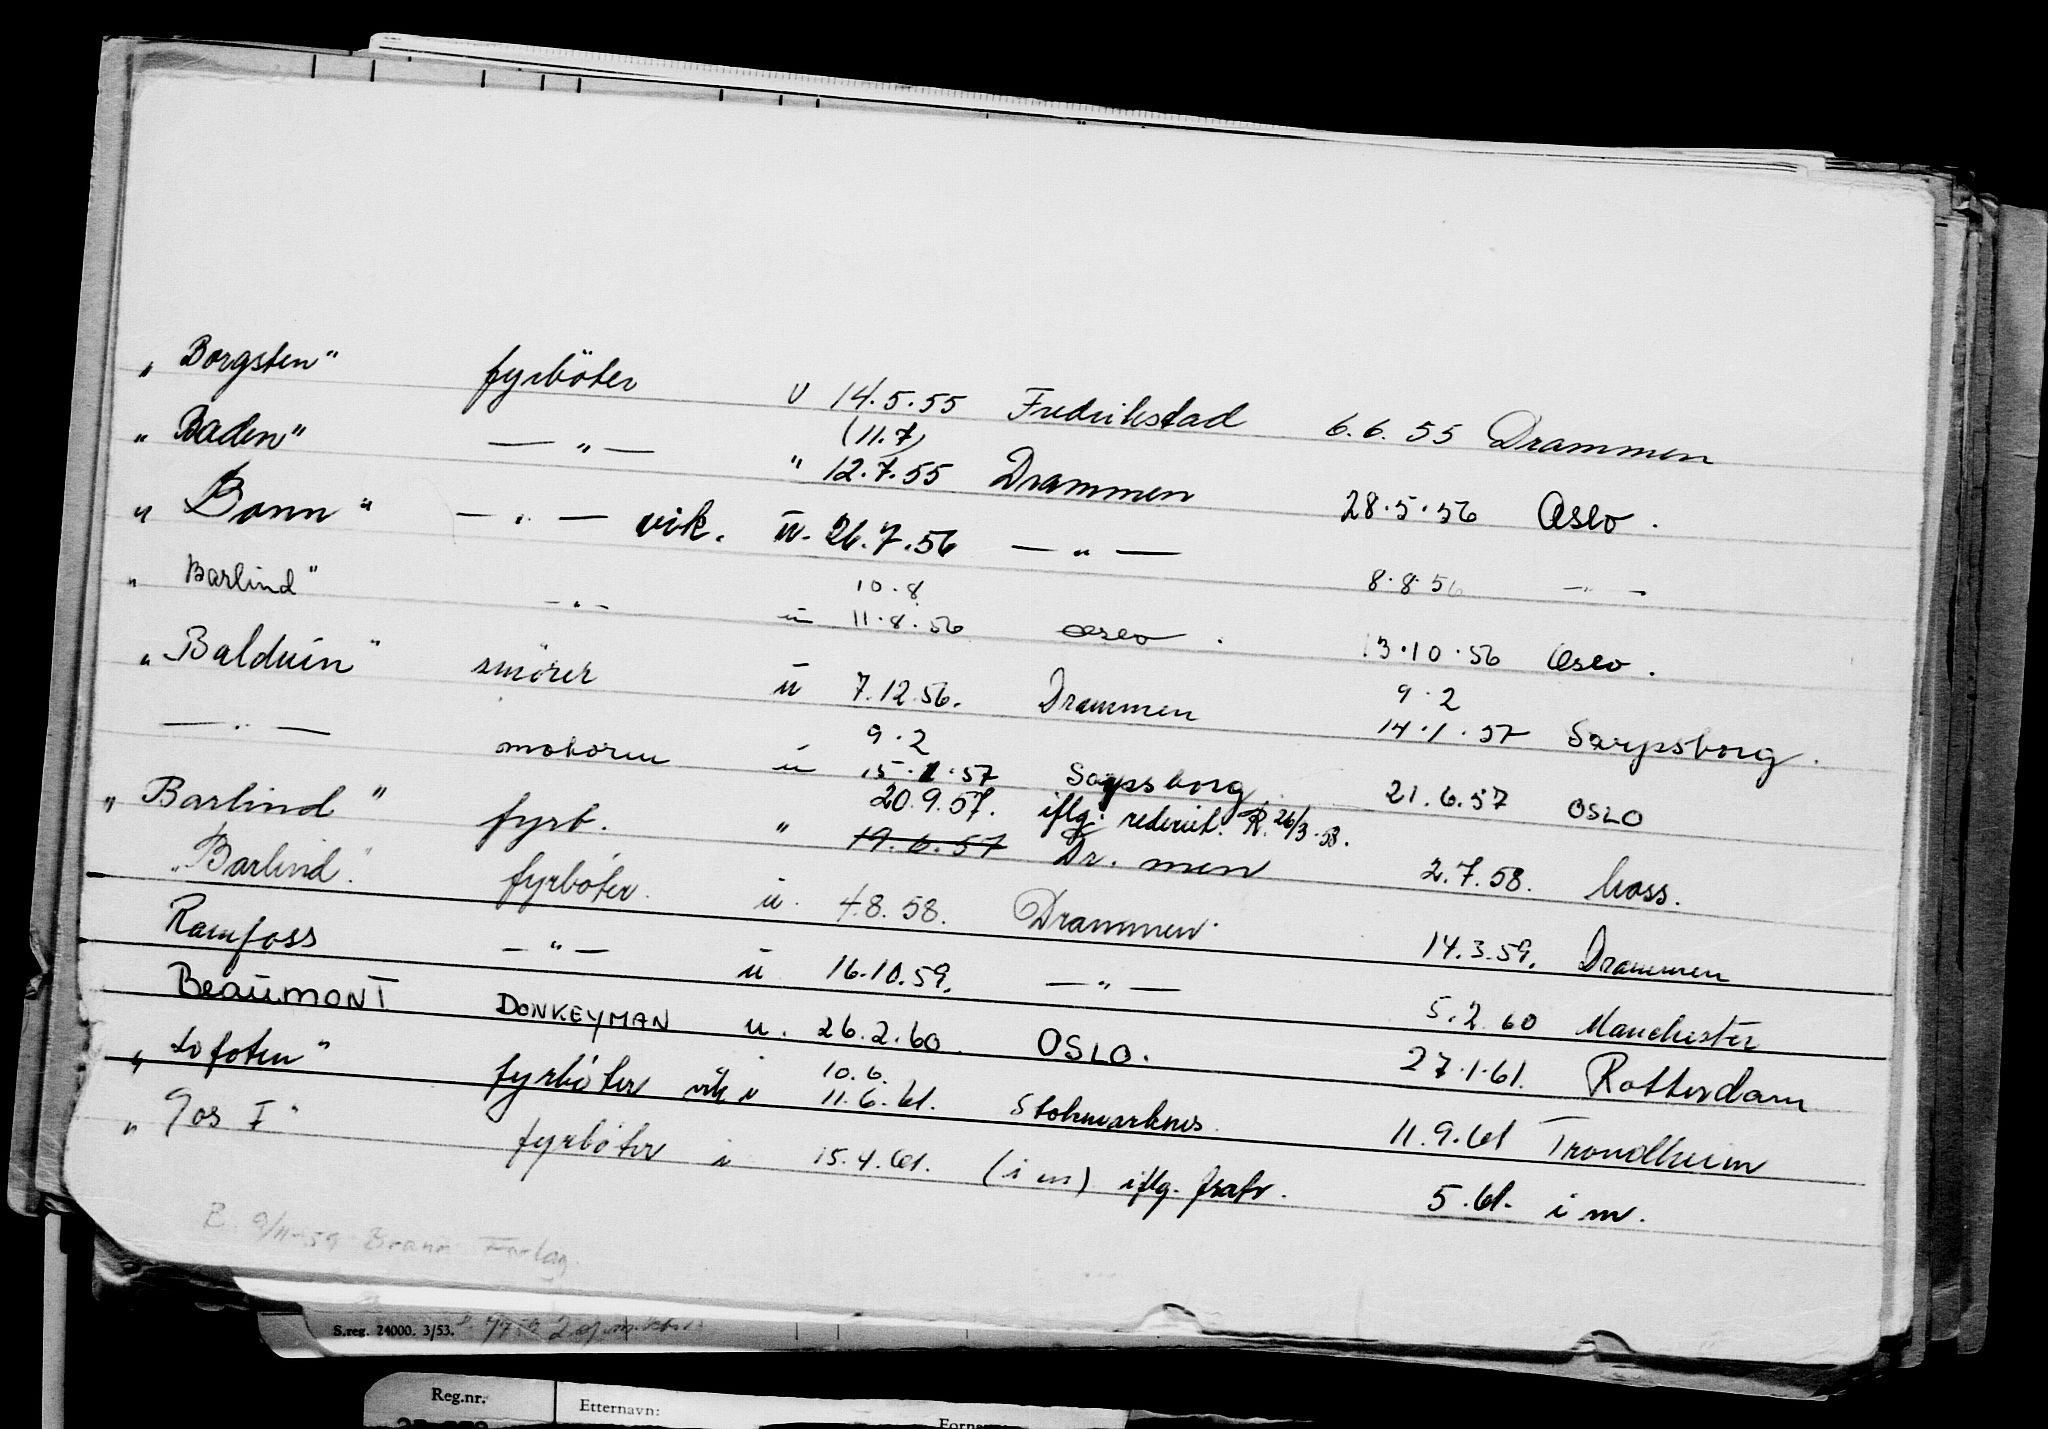 „ Borgsten" fyrböter u 14.5.55 Fredrikstad 6.6.55 Drammen
(11.7)
„ Baden" — " — " 12.7.55 Drammen 28.5.56 Oslo.
„ Bonn" — " — vik. u. 26.7.56 — " — 8.8.56 — " —
10.8
„ Barlind" — " — u 11.8.56 Oslo. 13.10.56 Oslo.
9.2
„ Balduin" smörer u 7.12.56. Drammen 14.1.57 Sarpsborg.
9.2
— " — motorm u 15.1.57 Sarpsborg 21.6.57 OSLO
20.9.57. iflg. rederiet. R. 26/3-58.
„ Barlind" fyrb. " 19.6.57 Dr.men 2.7.58. Moss.
„ Barlind". fyrböter. u. 4.8.58. Drammen. 14.3.59. Drammen
Ramfoss — " — u 16.10.59. — " — 5.2.60 Manchester
BEAUMONT DONKEYMAN u. 26.2.60. OSLO. 27.1.61. Rotterdam
10.6.
„ Lofoten" fyrböter vik u 11.6.61. Stokmarknes. 11.9.61 Trondheim
„ Gos I" fyrböter u 15.4.61. (i m) iflg. frafr. 5.61. i m.
R. 9/11-59 Forlag.
S.reg. 24000. 3/53.
Reg.nr. Etternavn: